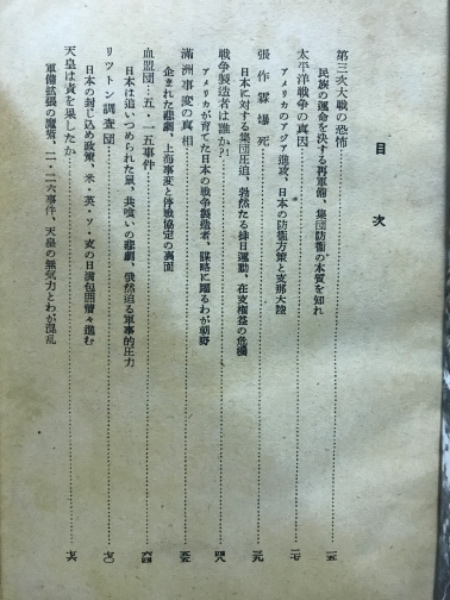 目次
第三次大戦の恐怖……一五
民族の運命を決する再軍備、集団防衛の本質を知れ
太平洋戦争の真因……二七
アメリカのアジア進攻、日本の防衛方策と支那大陸
張作霖爆死……三九
日本に対する集団圧迫、勃然たる排日運動、在支権益の危機
戦争製造者は誰か?!……四八
アメリカが育てた日本の戦争製造者、謀略に躍るわが朝野
満洲事変の真相……五五
企まれた悲劇、上海事変と停戦協定の裏面
血盟団…五・一五事件……六四
日本は追いつめられた鼠、共喰いの悲劇、俄然迫る軍事的圧力
リットン調査団……七〇
日本の封じ込め政策、米・英・ソ・支の日満包囲着々進む
天皇は責を果したか……七六
軍備拡張の魔薬、二・二六事件、天皇の無気力とわが混乱